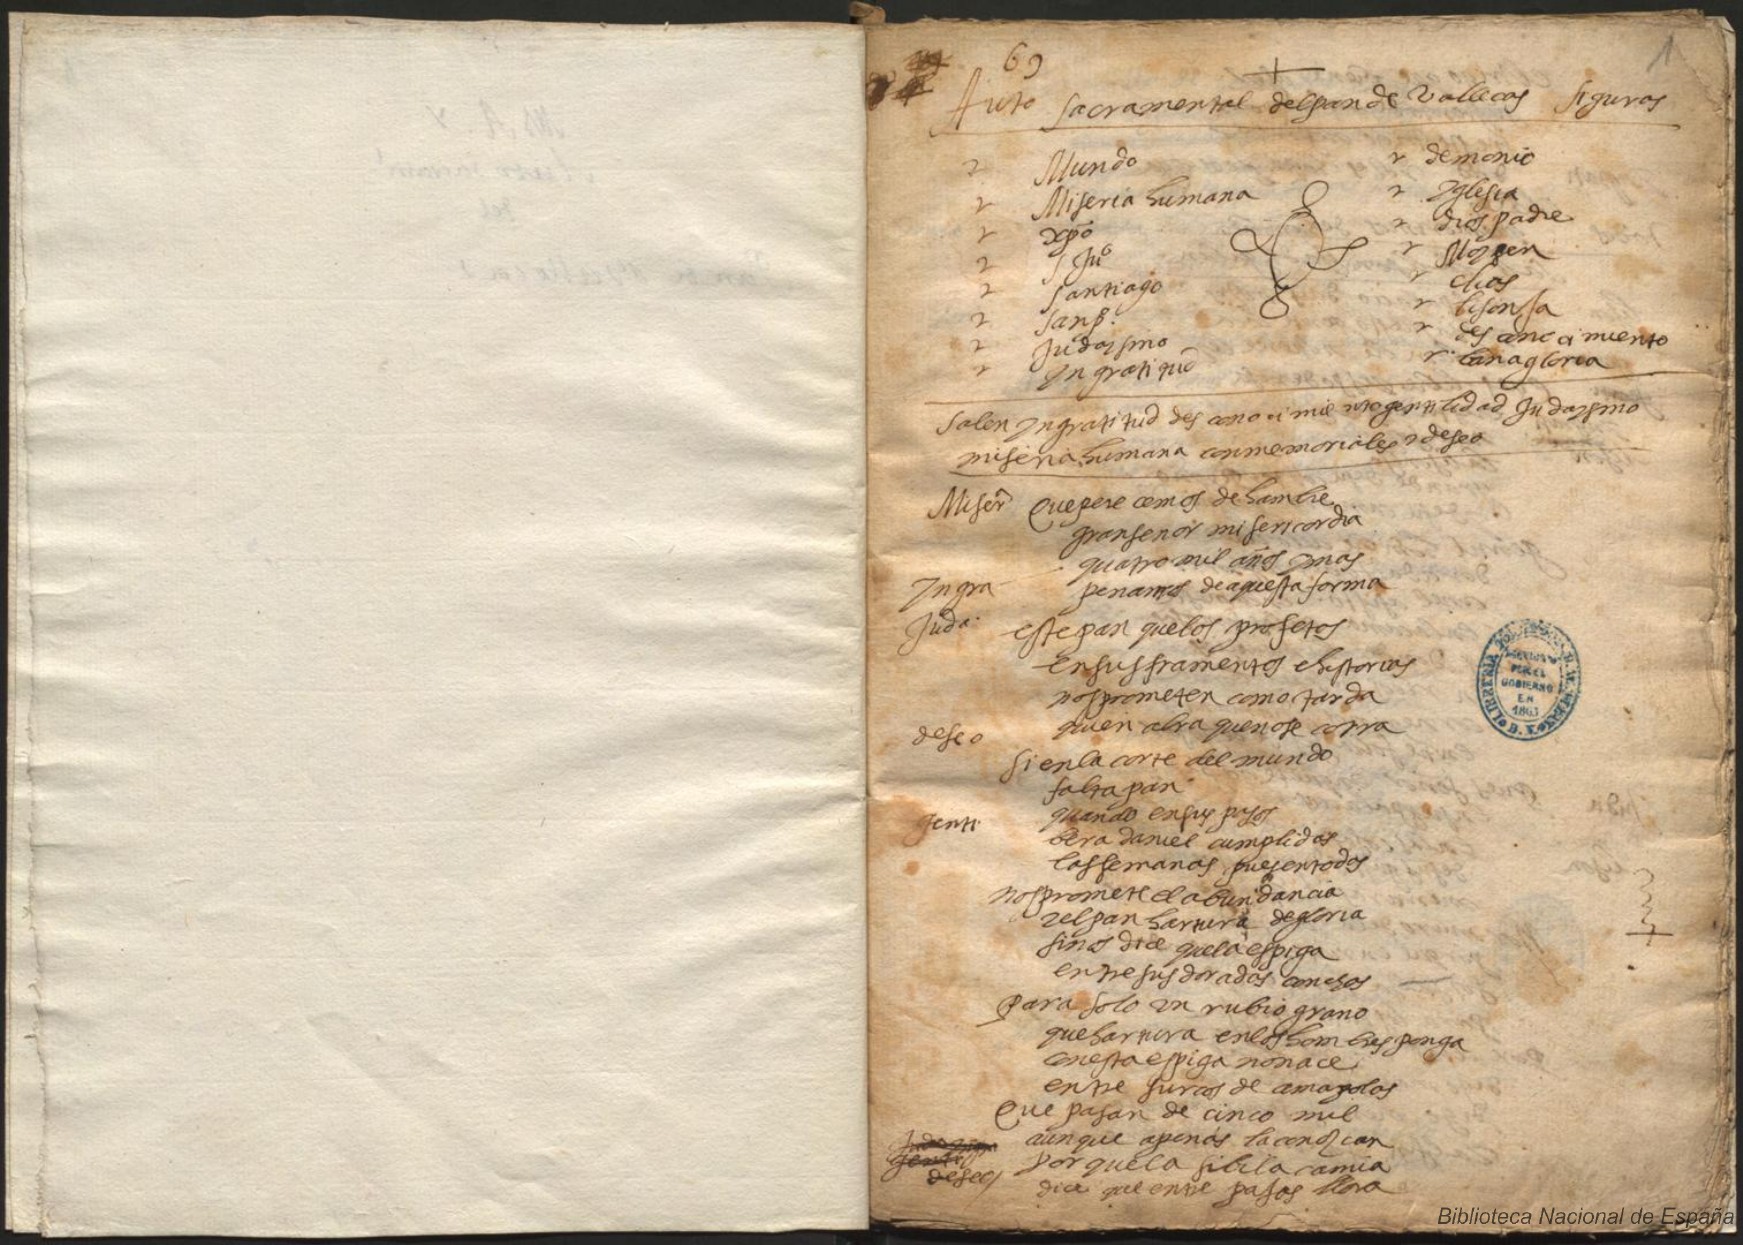 69
1
+
Auto Sacramental del pan de Vallecas figuras
Mundo
Miseria humana
xpo
S Juº
Santiago
San p.
Judaysmo
Yngratitud
demonio
Yglesia
dios padre
Moysen
elias
lisonja
desconocimiento
banagloria
Salen yngratitud desconocimiento gentilidad Judaysmo
miseria humana con memoriales y deseo
Miser que perecemos de hambre
gran señor misericordia
quatro mil años y mas
Yngra penamos de aquesta forma
Juda este pan que los profetas
en sus framentos e historias
nos prometen como tarda
quien abra que no se corra
deseo
si en la corte del mundo
falta pan
genti quando en sus pasos
bera daniel cumplidas
las semanas pues en todas
nos promete el abundancia
y el pan hartura de gloria
si nos dice que la espiga
entre sus doradas
para solo un rubio grano
que hartura en los hombres ponga
en esta espiga no nace
entre surcos de amapolas
Que pasan de cinco mil
aunque apenas la conozcan
deseo
porque la sibila camia
dice que entre pajas llora
LIBRERIA
GOBIERNO
EN
1863
B. N.
Biblioteca Nacional de España